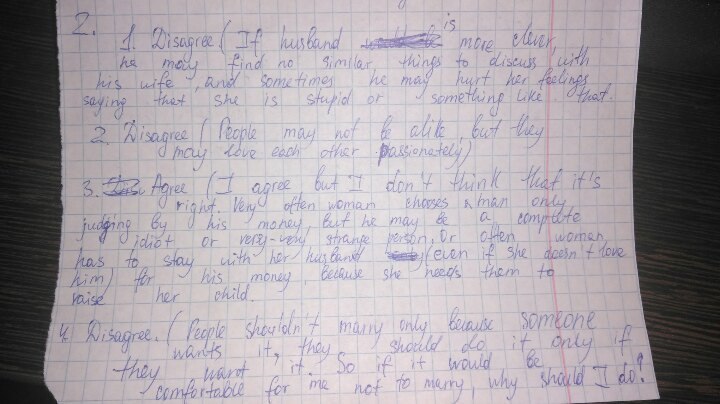 2.
1. Disagree ( If husband is more clever,
he may find no similar things to discuss with
his wife, and sometimes he may hurt her feelings
saying that she is stupid or something like that.
2. Disagree ( People may not be alike, but they
may love each other passionately)
3. Agree ( I agree but I don't think that it's
right. Very often woman chooses a man only
judging by his money, but he may be a complete
idiot or very-very strange person. Or often woman
has to stay with her husband (even if she doesn't love
him) for his money, because she needs them to
raise her child.
4. Disagree. ( People shouldn't marry only because someone
wants it, they should do it only if
they want it. So if it would be
comfortable for me not to marry, why should I do?